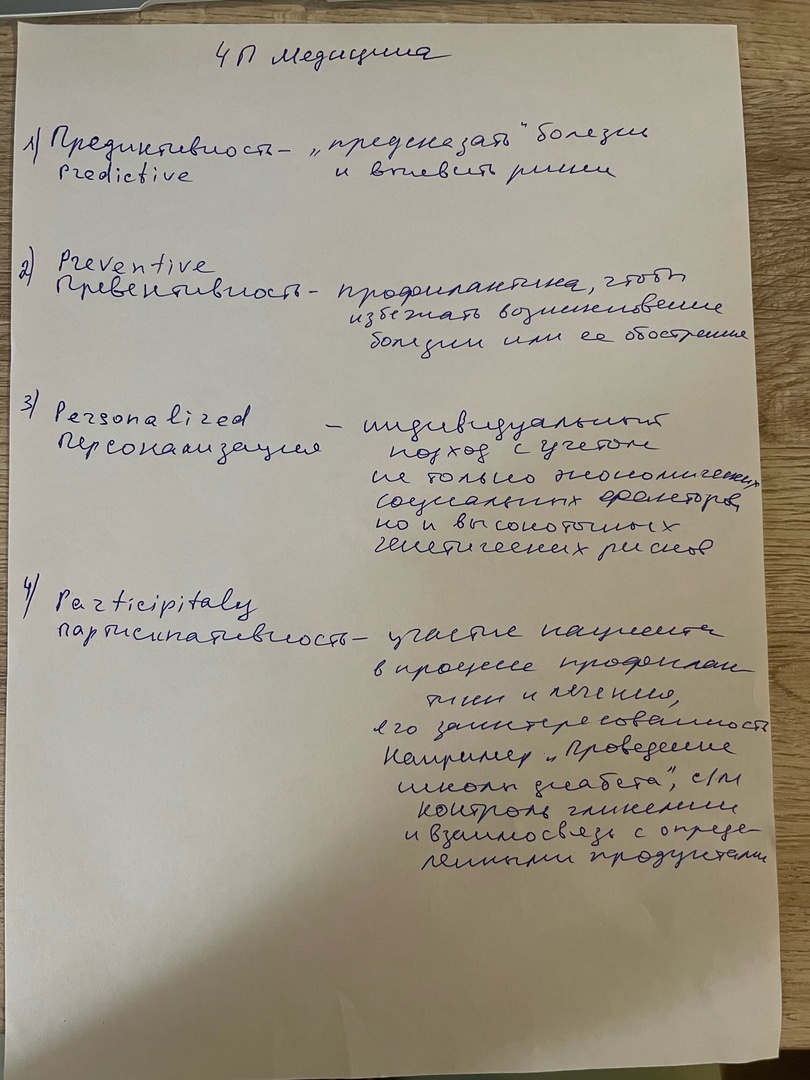 4П Медицина
1) Предиктивность – „предсказать" болезни
Predictive и выявить риски
2) Preventive
Превентивность – профилактика, чтобы
избежать возникновение
болезни или ее обострения
3) Personalized – индивидуальный
персонализация подход с учетом
не только экономических
социальных факторов,
но и высокоточных
генетических рисков
4) Participitaly
партисипативность – участие пациента
в процессе профилак
тики и лечения,
его заинтересованность
Например „Проведение
школы диабета", с/м
контроль гликемии
и взаимосвязь с опреде-
ленными продуктами